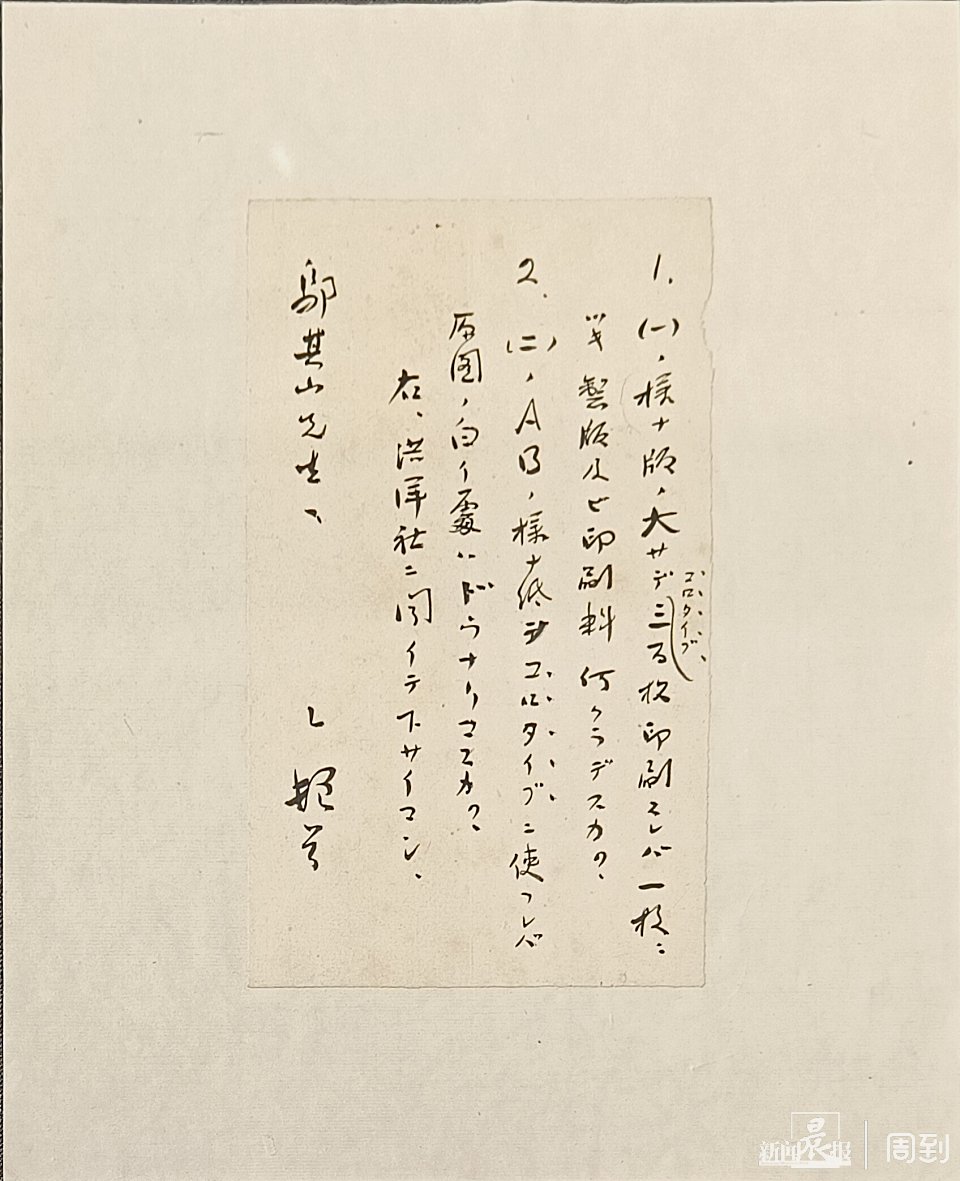 1. (一)ノ様ナ版ノ大サデ三百枚印刷スレバ一枚ニ
コロタイプ、
ツキ製版及ビ印刷料何クラデスカ?、
2. (二)ノABノ様ナ紙ヲコロタイプニ使フレバ
原図ノ白イ處ハドウナリマスカ?、
右、洪洋社ニ聞イテ下サイマシ、
鄔其山先生、
L 拝啓
新闻晨报 周到